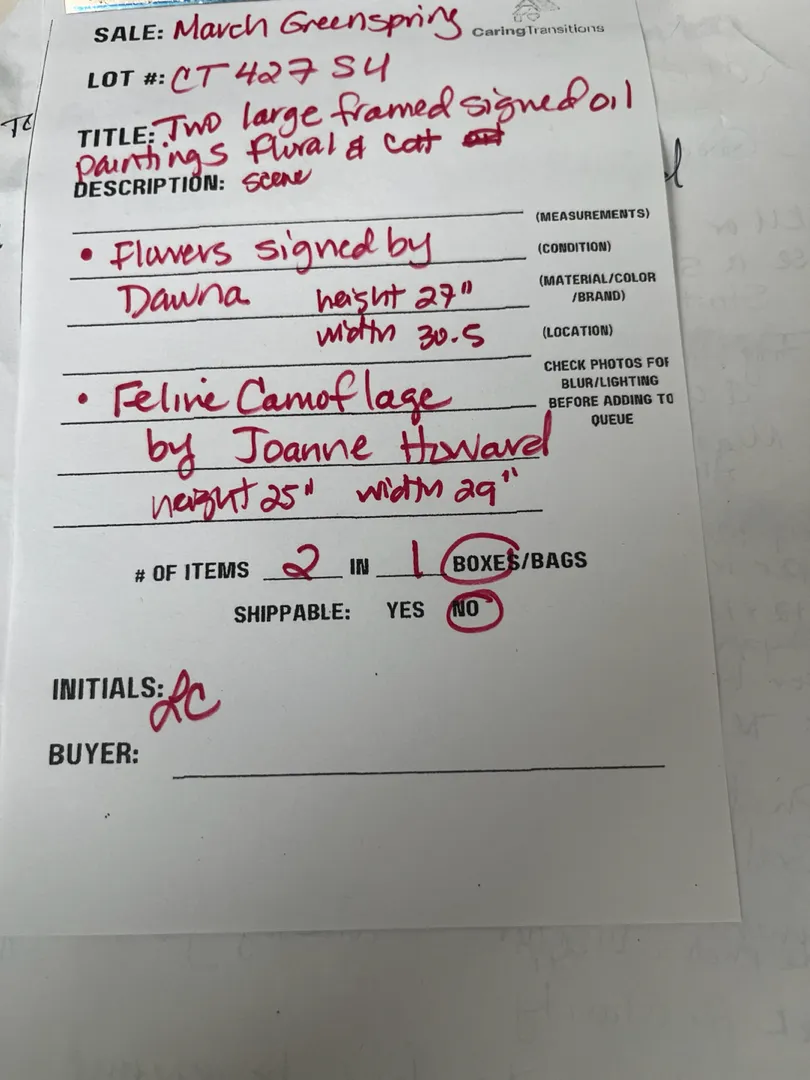 SALE: March Greenspring CaringTransitions
LOT #: CT 427 S4
TITLE: Two large framed signed oil
paintings flural & cat
DESCRIPTION: scene
(MEASUREMENTS)
• Flowers signed by (CONDITION)
Dawna height 27" (MATERIAL/COLOR
/BRAND)
width 30.5 (LOCATION)
CHECK PHOTOS FOR
BLUR/LIGHTING
• Feline Camoflage BEFORE ADDING TO
QUEUE
by Joanne Howard
height 25" width 29"
# OF ITEMS 2 IN 1 BOXES/BAGS
SHIPPABLE: YES NO
INITIALS: LC
BUYER: